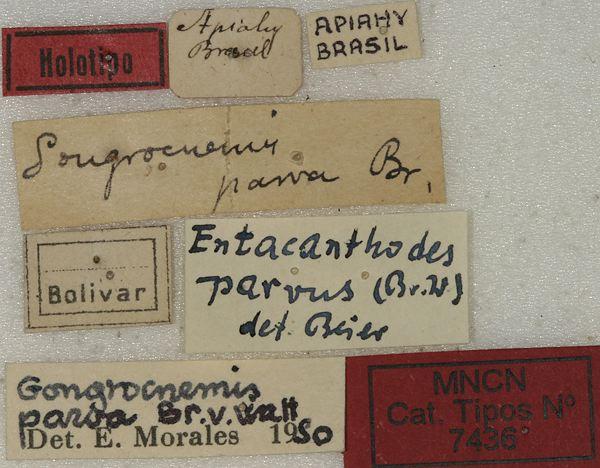 Holotipo
Apiahy
Brasil
APIAHY
BRASIL
Gongrocnemis
parva Br.
Bolivar
Entacanthodes
parvus (Br.W)
det. Beier
Gongrocnemis
parva Br.v.Watt
Det. E. Morales 1950
MNCN
Cat. Tipos Nº
7436